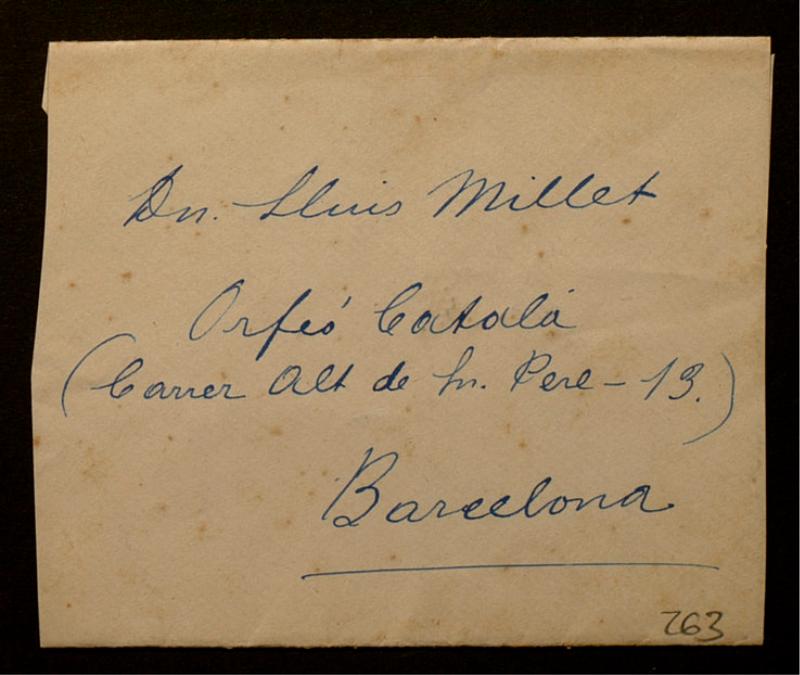 Dn. Lluis Millet
Orfeó Català
(Carrer Alt de Sn. Pere - 13.)
Barcelona
263